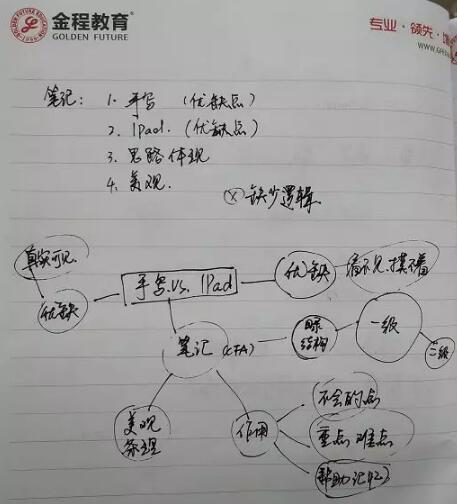 金程教育®
GOLDEN FUTURE
专业·领先·
www.
笔记: 1. 手写 (优缺点)
2. iPad. (优缺点)
3. 思路体现
4. 美观.
ⓧ 缺少逻辑
真实可见
优缺
手写 vs. iPad
优缺
看不见.摸不着
笔记 (CFA)
结构
一级
二级
美观
条理
作用
不会的点
重点 难点
帮助记忆